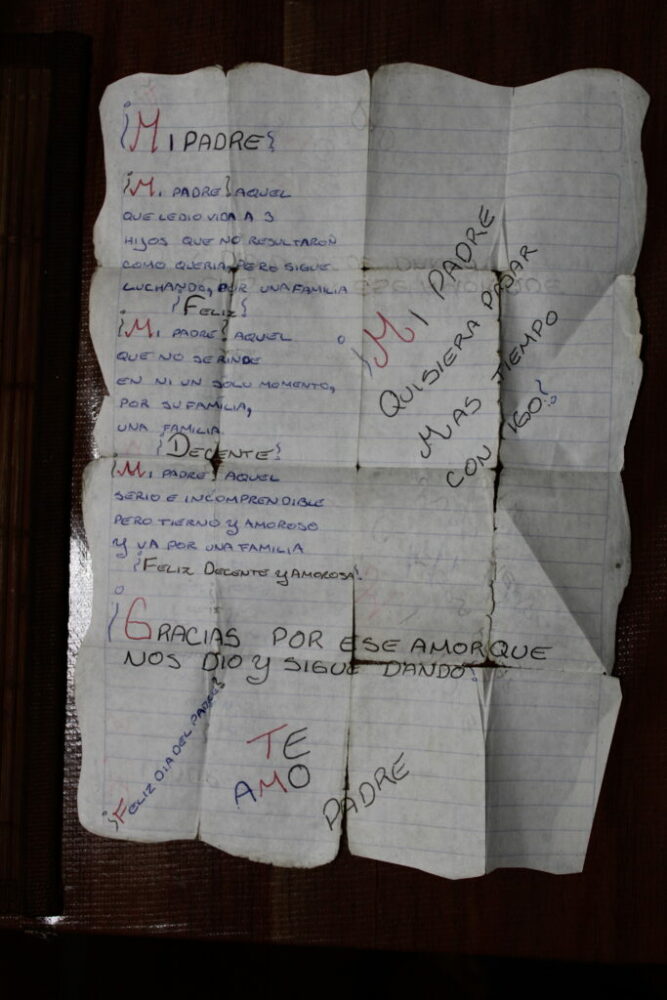 ¡MI PADRE!
¡MI PADRE! AQUEL
QUE LE DIO VIDA A 3
HIJOS QUE NO RESULTARON
COMO QUERIA, PERO SIGUE
LUCHANDO, POR UNA FAMILIA
¡FELIZ!
¡MI PADRE! AQUEL
QUE NO SE RINDE
EN NI UN SOLO MOMENTO,
POR SU FAMILIA,
UNA FAMILIA
¡DECENTE!
¡MI PADRE! AQUEL
SERIO E INCOMPRENDIBLE
PERO TIERNO Y AMOROSO
Y VA POR UNA FAMILIA
¡FELIZ DECENTE Y AMOROSA!
¡MI PADRE
QUISIERA PASAR
MAS TIEMPO
CONTIGO!
¡GRACIAS POR ESE AMOR QUE
NOS DIO Y SIGUE DANDO!
¡FELIZ DIA DEL PADRE!
TE
AMO
PADRE